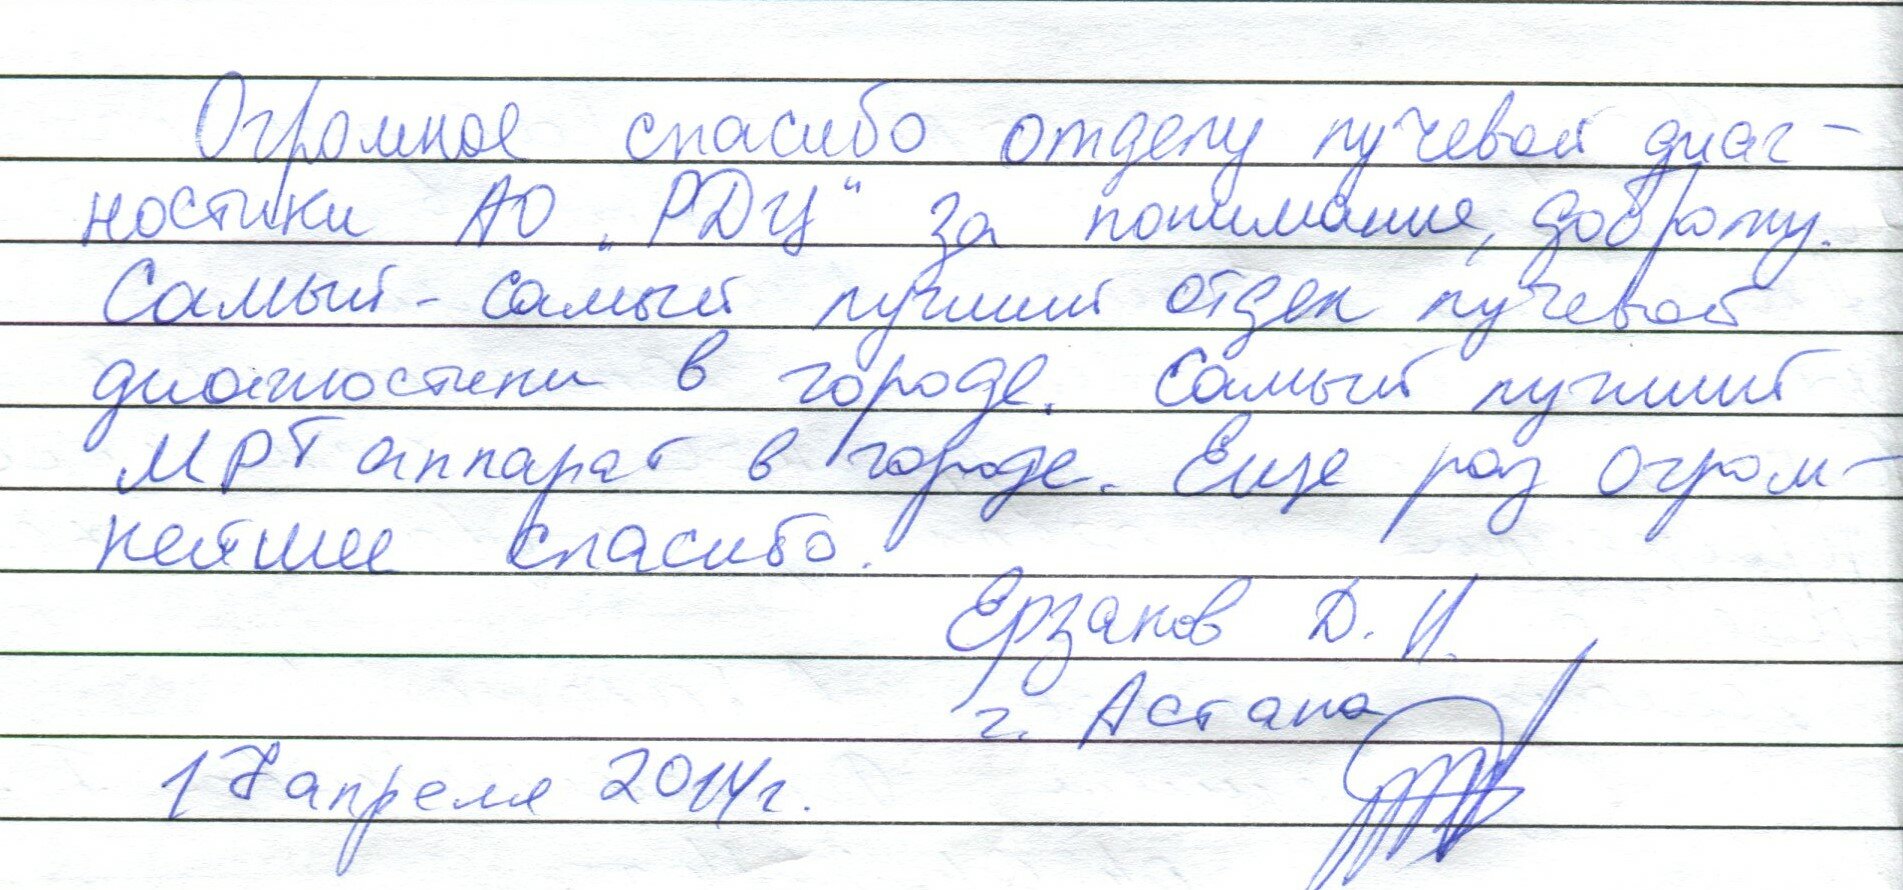 Огромное спасибо отделу лучевой диаг-
ностики АО „РДЦ“ за понимание, доброту.
Самый-самый лучший отдел лучевой
диагностики в городе. Самый лучший
МРТ аппарат в городе. Еще раз огром-
нейшее спасибо.
Ерзаков Д. И.
г. Астана
17 апреля 2014г.